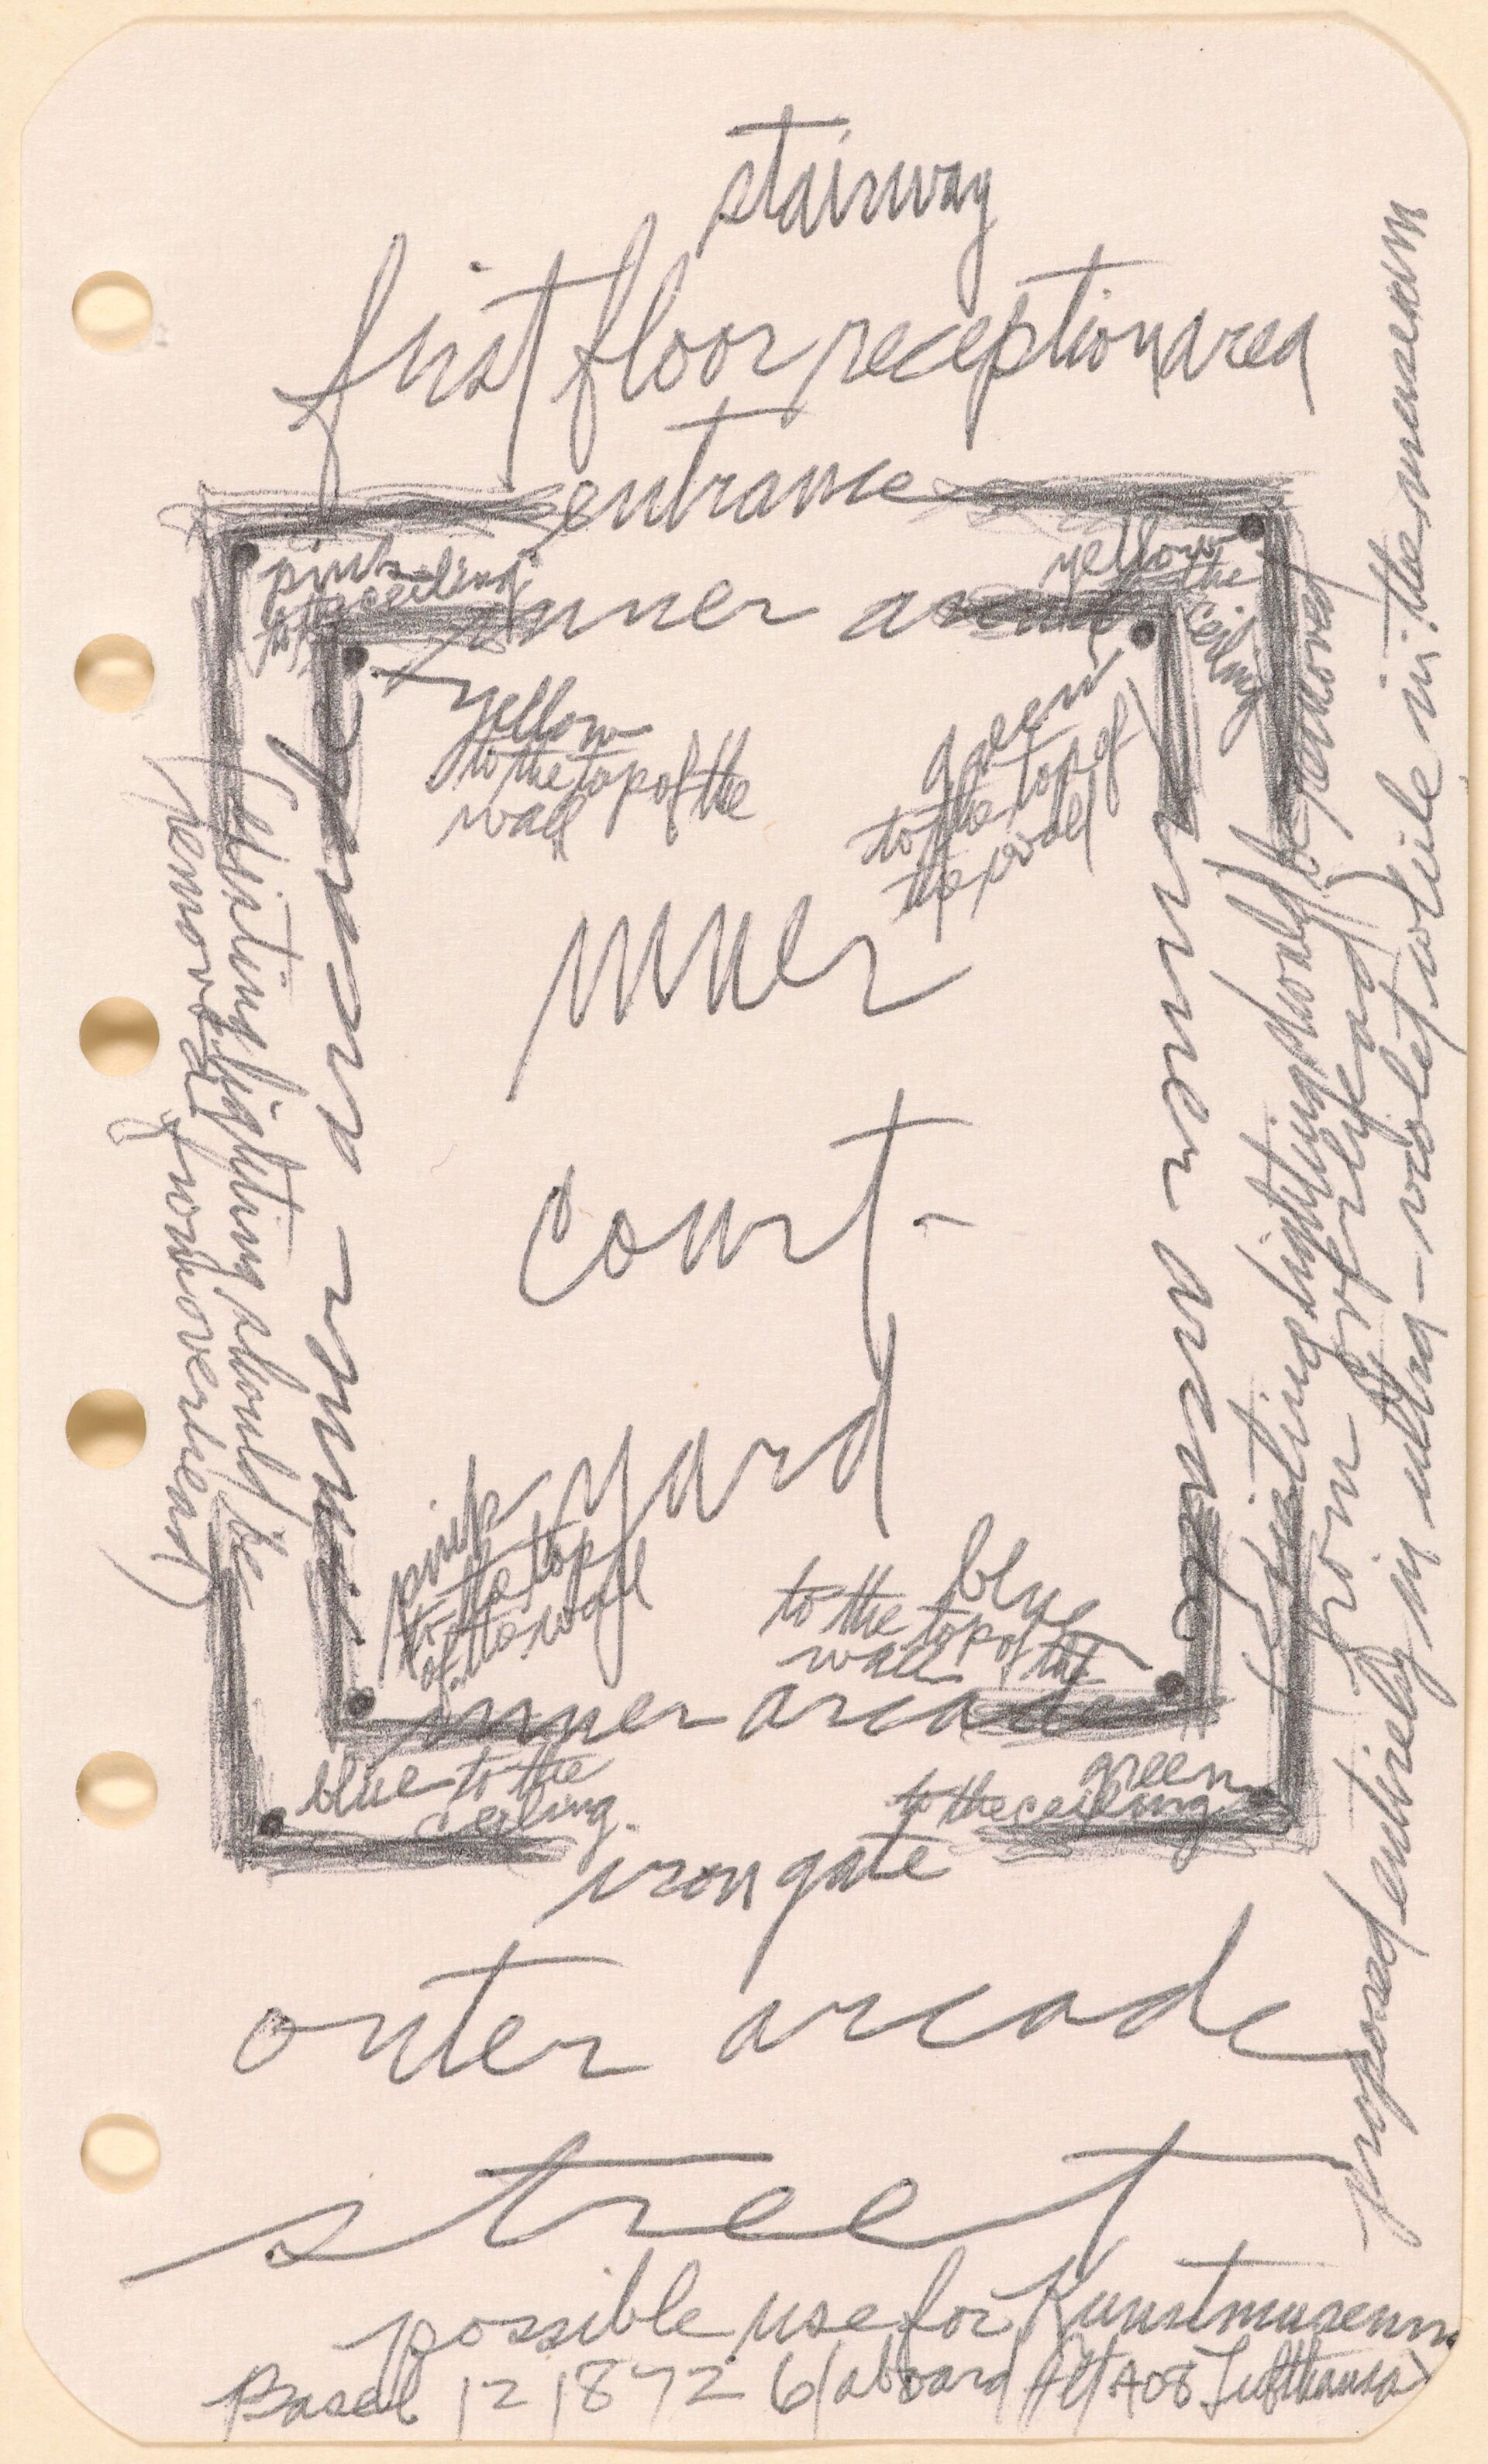 stairway
first floor reception area
entrance
pink
to the ceiling
yellow
to the
ceiling
inner arcade
yellow
to the top of the
wall
green
to the top of
the wall
inner
court-
yard
inner arcade
(existing lighting should be
removed from overhead)
inner arcade
(existing lighting should be removed
from overhead)
proposed entirely in ultra-violet while in the museum
pink
to the top
of the wall
blue
to the top of the
wall
inner arcade
blue to the
ceiling
green
to the ceiling
iron gate
outer arcade
street
possible use for Kunstmuseum
Basel 12 18 72 (aboard Flt 408 Lufthansa)